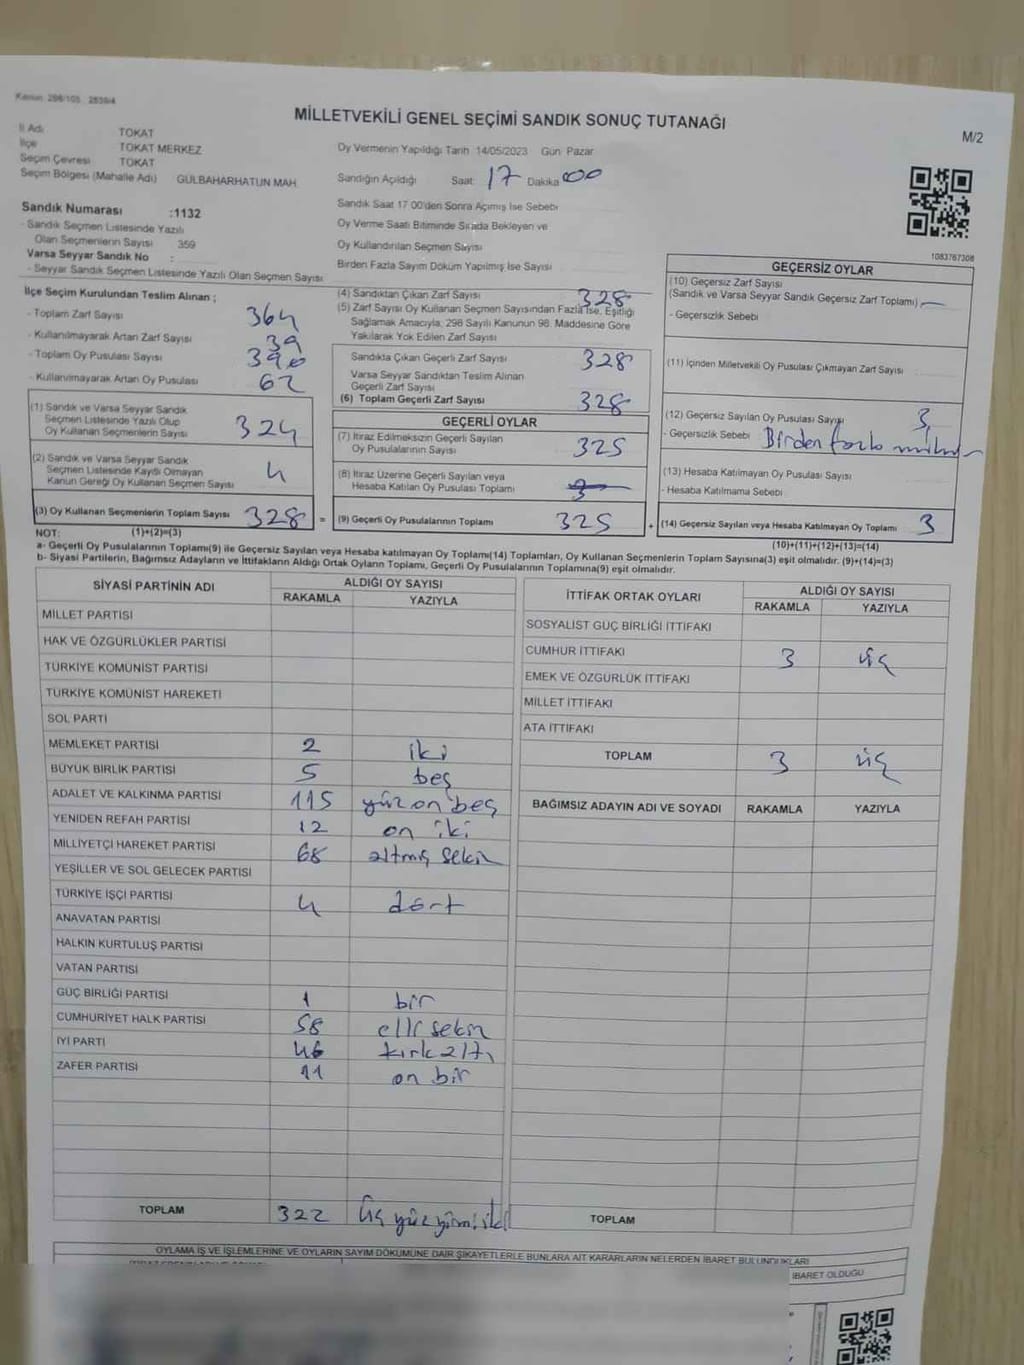 Kanun: 298/105 2839/4
MİLLETVEKİLİ GENEL SEÇİMİ SANDIK SONUÇ TUTANAĞI
M/2
İl Adı TOKAT
İlçe TOKAT MERKEZ
Seçim Çevresi TOKAT
Seçim Bölgesi (Mahalle Adı) GÜLBAHARHATUN MAH.
Oy Vermenin Yapıldığı Tarih 14/05/2023 Gün: Pazar
Sandığın Açıldığı Saat: 17 Dakika 00
Sandık Saat 17 00'den Sonra Açımış İse Sebebi
Oy Verme Saati Bitiminde Sırada Bekleyen ve
Oy Kullandırılan Seçmen Sayısı
Birden Fazla Sayım Döküm Yapılmış İse Sayısı
1083767306
Sandık Numarası :1132
- Sandık Seçmen Listesinde Yazılı
Olan Seçmenlerin Sayısı 359
Varsa Seyyar Sandık No :
- Seyyar Sandık Seçmen Listesinde Yazılı Olan Seçmen Sayısı
İlçe Seçim Kurulundan Teslim Alınan ;
- Toplam Zarf Sayısı 364
- Kullanılmayarak Artan Zarf Sayısı 39
- Toplam Oy Pusulası Sayısı 390
- Kullanılmayarak Artan Oy Pusulası 62
(1) Sandık ve Varsa Seyyar Sandık
Seçmen Listesinde Yazılı Olup
Oy Kullanan Seçmenlerin Sayısı 324
(2) Sandık ve Varsa Seyyar Sandık
Seçmen Listesinde Kaydı Olmayan
Kanun Gereği Oy Kullanan Seçmen Sayısı 4
(3) Oy Kullanan Seçmenlerin Toplam Sayısı 328 =
(4) Sandıktan Çıkan Zarf Sayısı 328
(5) Zarf Sayısı Oy Kullanan Seçmen Sayısından Fazla İse, Eşitliği
Sağlamak Amacıyla, 298 Sayılı Kanunun 98. Maddesine Göre
Yakılarak Yok Edilen Zarf Sayısı
Sandıkta Çıkan Geçerli Zarf Sayısı 328
Varsa Seyyar Sandıktan Teslim Alınan
Geçerli Zarf Sayısı
(6) Toplam Geçerli Zarf Sayısı 328
GEÇERLİ OYLAR
(7) İtiraz Edilmeksizin Geçerli Sayılan
Oy Pusulalarının Sayısı 325
(8) İtiraz Üzerine Geçerli Sayılan veya
Hesaba Katılan Oy Pusulası Toplamı
(9) Geçerli Oy Pusulalarının Toplamı 325 +
GEÇERSİZ OYLAR
(10) Geçersiz Zarf Sayısı
(Sandık ve Varsa Seyyar Sandık Geçersiz Zarf Toplamı)
- Geçersizlik Sebebi
(11) İçinden Milletvekili Oy Pusulası Çıkmayan Zarf Sayısı
(12) Geçersiz Sayılan Oy Pusulası Sayısı 3
- Geçersizlik Sebebi Birden fazla
(13) Hesaba Katılmayan Oy Pusulası Sayısı
- Hesaba Katılmama Sebebi
(14) Geçersiz Sayılan veya Hesaba Katılmayan Oy Toplamı 3
NOT: (1)+(2)=(3)
(10)+(11)+(12)+(13)=(14)
a- Geçerli Oy Pusulalarının Toplamı(9) ile Geçersiz Sayılan veya Hesaba katılmayan Oy Toplamı(14) Toplamları, Oy Kullanan Seçmenlerin Toplam Sayısına(3) eşit olmalıdır. (9)+(14)=(3)
b- Siyasi Partilerin, Bağımsız Adayların ve İttifakların Aldığı Ortak Oyların Toplamı, Geçerli Oy Pusulalarının Toplamına(9) eşit olmalıdır.
SİYASİ PARTİNİN ADI ALDIĞI OY SAYISI
RAKAMLA YAZIYLA
MİLLET PARTİSİ
HAK VE ÖZGÜRLÜKLER PARTİSİ
TÜRKİYE KOMÜNİST PARTİSİ
TÜRKİYE KOMÜNİST HAREKETİ
SOL PARTİ
MEMLEKET PARTİSİ 2 iki
BÜYÜK BİRLİK PARTİSİ 5 beş
ADALET VE KALKINMA PARTİSİ 115 yüz on beş
YENİDEN REFAH PARTİSİ 12 on iki
MİLLİYETÇİ HAREKET PARTİSİ 68 altmış sekiz
YEŞİLLER VE SOL GELECEK PARTİSİ
TÜRKİYE İŞÇİ PARTİSİ 4 dört
ANAVATAN PARTİSİ
HALKIN KURTULUŞ PARTİSİ
VATAN PARTİSİ
GÜÇ BİRLİĞİ PARTİSİ 1 bir
CUMHURİYET HALK PARTİSİ 58 elli sekiz
İYİ PARTİ 46 kırk altı
ZAFER PARTİSİ 11 on bir
TOPLAM 322 üç yüz yirmi iki
İTTİFAK ORTAK OYLARI ALDIĞI OY SAYISI
RAKAMLA YAZIYLA
SOSYALİST GÜÇ BİRLİĞİ İTTİFAKI
CUMHUR İTTİFAKI 3 üç
EMEK VE ÖZGÜRLÜK İTTİFAKI
MİLLET İTTİFAKI
ATA İTTİFAKI
TOPLAM 3 üç
BAĞIMSIZ ADAYIN ADI VE SOYADI RAKAMLA YAZIYLA
TOPLAM
OYLAMA İŞ VE İŞLEMLERİNE VE OYLARIN SAYIM DÖKÜMÜNE DAİR ŞİKAYETLERLE BUNLARA AİT KARARLARIN NELERDEN İBARET BULUNDUKLARI
İBARET OLDUĞU